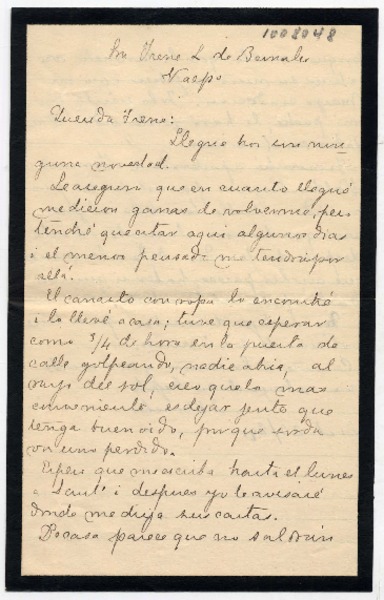 1008048
Sra Irene L. de Bernales
Valpo
Querida Irene:
Llegué hoi sin nin-
guna novedad.
Le aseguro que en cuanto llegué
me dieron ganas de volverme, pero
tendré que estar aqui algunos dias
i el menos pensado me tendrá por
allá.
El canasto con ropa lo encontré
i lo llevé a casa; tuve que esperar
como 3/4 de hora en la puerta de
calle golpeando, nadie abria, al
rayo del sol, creo que lo mas
conveniente es dejar jente que
tenga buen oido, porque sinó
va uno perdido.
Espero que me escriba hasta el lunes
a Sant. i despues yo le avisaré
donde me dirija sus cartas.
De casa parece que no saldrán